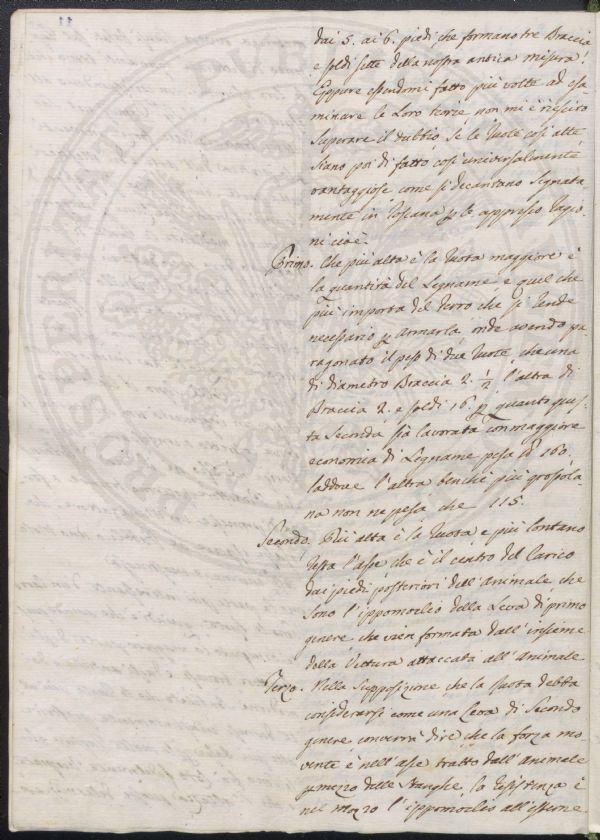 11
dai 5. ai 6. piedi che formano tre Braccia
e soldi sette della nostra antica misura!
Eppure essendomi fatto più volte ad esa-
minare le Loro teorie non mi è riescito
superare il dubbio se le Ruote così alte
siano poi di fatto così universalmente
vantaggiose come si decantano segnata
mente in Toscana p le appresso ragio
ni cioè.
Primo. Che più alta è la Ruota maggiore è
la quantità del Legname, e quel che
più importa del ferro che si rende
necessario p armarla, onde avendo pa
ragonato il peso di due Ruote, che una
di diametro Braccia 2. 1/2 l'altra di
Braccia 2. e soldi 16. p quanto ques-
ta seconda sia lavorata con maggiore
economia di Legname pesa lb 160.
laddove l'altra benchè più grossola-
na non ne pesa che 115.
Secondo. Più alta è la Ruota e più lontano
resta l'asse che è il centro del Carico
dai piedi posteriori dell'Animale che
sono l'ippomoclio della Leva di primo
genere che vien formata dall'insieme
della Vettura attaccata all'Animale
Terzo. Nella supposizione che la ruota debba
considerarsi come una Leva di Secondo
genere converrà dire che la forza mo
vente è nell'asse tratto dall'Animale
p mezzo delle stanghe, la resistenza è
nel mozzo l'ippomoclio all'esterne